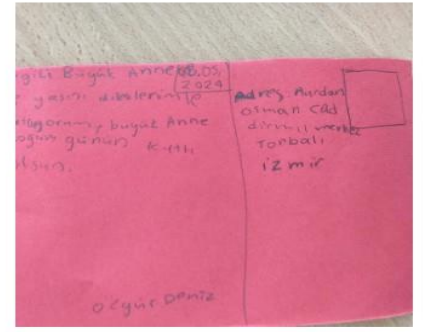 gili Büyük Anne
08.05.
2024
yaşını dileklerimle
büyük Anne
doğum günün kutlu
olsun.
Özgür Deniz
Adres Aurdan
osman cad
merkez
Torbalı
izmir